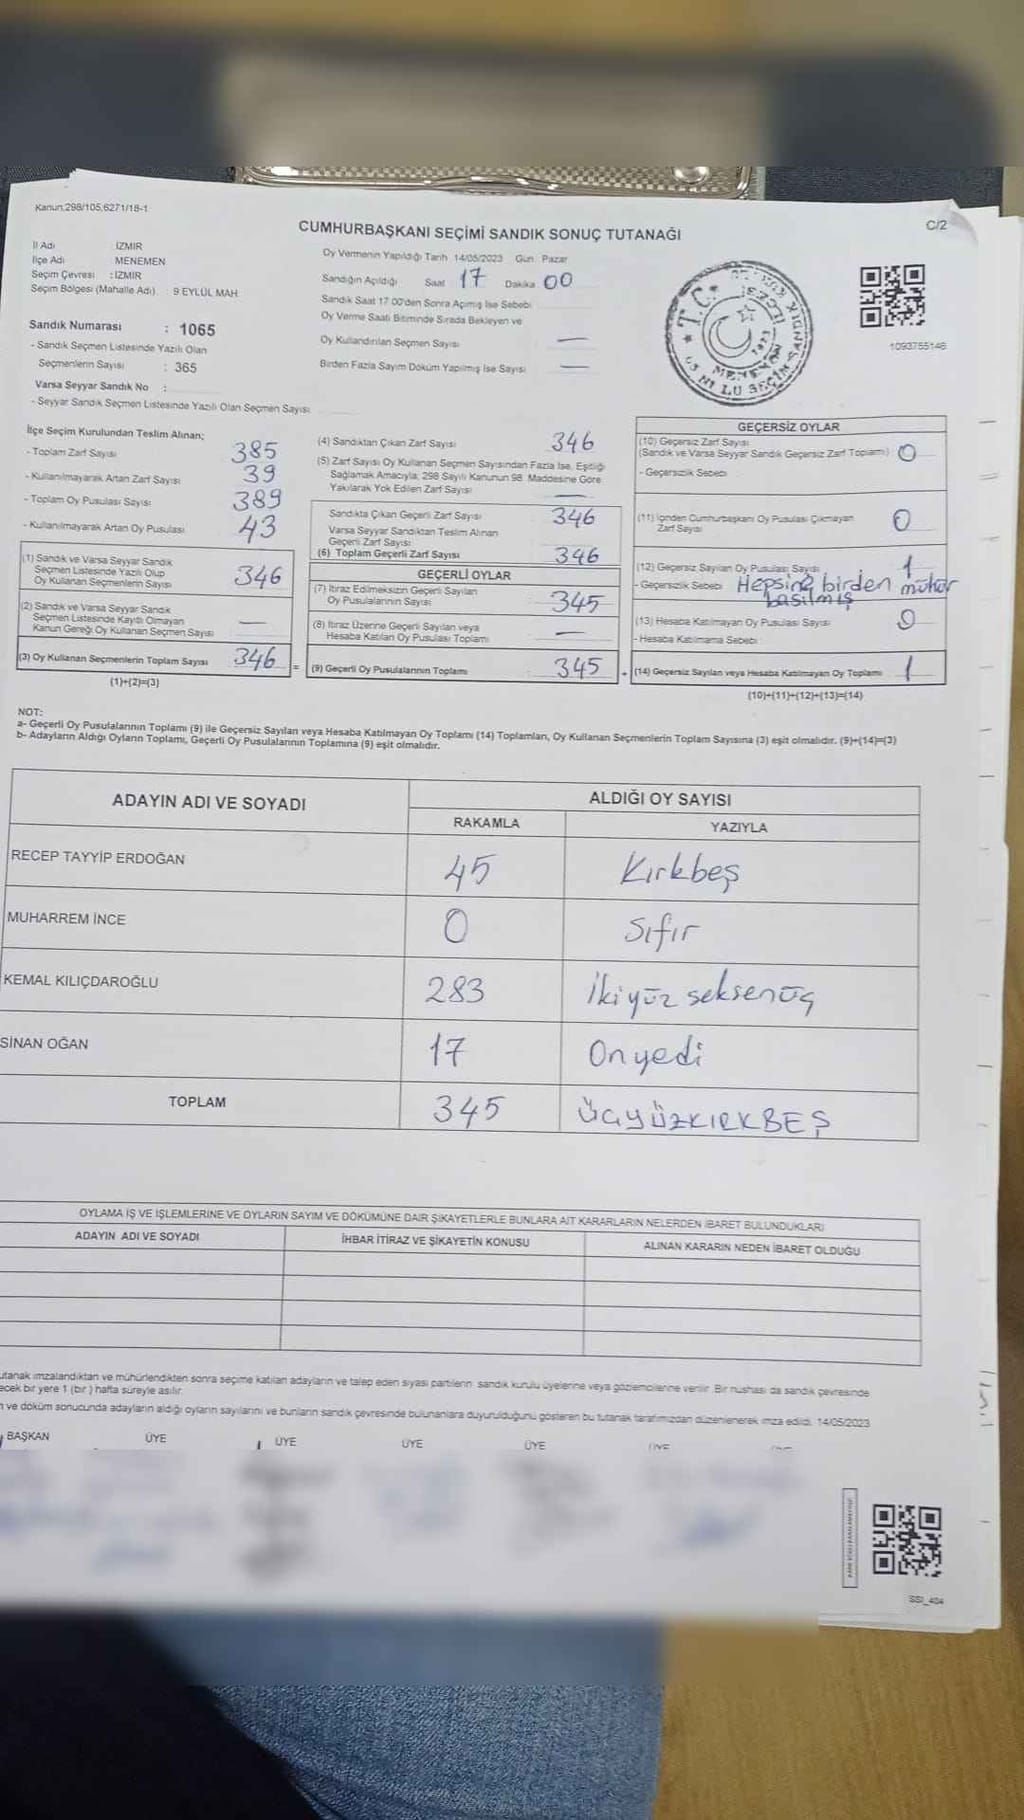 Kanun;298/105,6271/18-1
C/2
CUMHURBAŞKANI SEÇİMİ SANDIK SONUÇ TUTANAĞI
İl Adı İZMİR
İlçe Adı MENEMEN
Seçim Çevresi : İZMİR
Seçim Bölgesi (Mahalle Adı) : 9 EYLÜL MAH.
Sandık Numarası : 1065
- Sandık Seçmen Listesinde Yazılı Olan
Seçmenlerin Sayısı : 365
Varsa Seyyar Sandık No :
- Seyyar Sandık Seçmen Listesinde Yazılı Olan Seçmen Sayısı
Oy Vermenin Yapıldığı Tarih 14/05/2023 Gün: Pazar
Sandığın Açıldığı Saat 17 Dakika 00
Sandık Saat 17:00'den Sonra Açımış İse Sebebi
Oy Verme Saati Bitiminde Sırada Bekleyen ve
Oy Kullandırılan Seçmen Sayısı —
Birden Fazla Sayım Döküm Yapılmış İse Sayısı —
T.C.
MENEMEN
1093755146
İlçe Seçim Kurulundan Teslim Alınan;
- Toplam Zarf Sayısı 385
- Kullanılmayarak Artan Zarf Sayısı 39
- Toplam Oy Pusulası Sayısı 389
- Kullanılmayarak Artan Oy Pusulası 43
(1) Sandık ve Varsa Seyyar Sandık
Seçmen Listesinde Yazılı Olup
Oy Kullanan Seçmenlerin Sayısı 346
(2) Sandık ve Varsa Seyyar Sandık
Seçmen Listesinde Kayıtlı Olmayan
Kanun Gereği Oy Kullanan Seçmen Sayısı —
(3) Oy Kullanan Seçmenlerin Toplam Sayısı 346
(1)+(2)=(3)
(4) Sandıktan Çıkan Zarf Sayısı 346
(5) Zarf Sayısı Oy Kullanan Seçmen Sayısından Fazla İse, Eşitliği
Sağlamak Amacıyla, 298 Sayılı Kanunun 98. Maddesine Göre
Yakılarak Yok Edilen Zarf Sayısı —
Sandıkta Çıkan Geçerli Zarf Sayısı 346
Varsa Seyyar Sandıktan Teslim Alınan
Geçerli Zarf Sayısı
(6) Toplam Geçerli Zarf Sayısı 346
GEÇERLİ OYLAR
(7) İtiraz Edilmeksizin Geçerli Sayılan
Oy Pusulalarının Sayısı 345
(8) İtiraz Üzerine Geçerli Sayılan veya
Hesaba Katılan Oy Pusulası Toplamı —
= (9) Geçerli Oy Pusulalarının Toplamı 345 +
GEÇERSİZ OYLAR
(10) Geçersiz Zarf Sayısı
(Sandık ve Varsa Seyyar Sandık Geçersiz Zarf Toplamı) 0
- Geçersizlik Sebebi
(11) İçinden Cumhurbaşkanı Oy Pusulası Çıkmayan
Zarf Sayısı 0
(12) Geçersiz Sayılan Oy Pusulası Sayısı 1
- Geçersizlik Sebebi Hepsine birden mühür
basılmış
(13) Hesaba Katılmayan Oy Pusulası Sayısı 0
- Hesaba Katılmama Sebebi
(14) Geçersiz Sayılan veya Hesaba Katılmayan Oy Toplamı 1
(10)+(11)+(12)+(13)=(14)
NOT:
a- Geçerli Oy Pusulalarının Toplamı (9) ile Geçersiz Sayılan veya Hesaba Katılmayan Oy Toplamı (14) Toplamları, Oy Kullanan Seçmenlerin Toplam Sayısına (3) eşit olmalıdır. (9)+(14)=(3)
b- Adayların Aldığı Oyların Toplamı, Geçerli Oy Pusulalarının Toplamına (9) eşit olmalıdır.
ADAYIN ADI VE SOYADI ALDIĞI OY SAYISI
RAKAMLA YAZIYLA
RECEP TAYYİP ERDOĞAN 45 Kırkbeş
MUHARREM İNCE 0 Sıfır
KEMAL KILIÇDAROĞLU 283 İkiyüz seksenüç
SİNAN OĞAN 17 Onyedi
TOPLAM 345 ÜÇYÜZKIRKBEŞ
OYLAMA İŞ VE İŞLEMLERİNE VE OYLARIN SAYIM VE DÖKÜMÜNE DAİR ŞİKAYETLERLE BUNLARA AİT KARARLARIN NELERDEN İBARET BULUNDUKLARI
ADAYIN ADI VE SOYADI İHBAR İTİRAZ VE ŞİKAYETİN KONUSU ALINAN KARARIN NEDEN İBARET OLDUĞU
utanak imzalandıktan ve mühürlendikten sonra seçime katılan adayların ve talep eden siyasi partilerin sandık kurulu üyelerine veya gözlemcilerine verilir. Bir nüshası da sandık çevresinde
ecek bir yere 1 (bir) hafta süreyle asılır.
ve döküm sonucunda adayların aldığı oyların sayılarını ve bunların sandık çevresinde bulunanlara duyurulduğunu gösteren bu tutanak tarafımızdan düzenlenerek imza edildi. 14/05/2023
BAŞKAN ÜYE ÜYE ÜYE ÜYE ÜYE
SSI_404